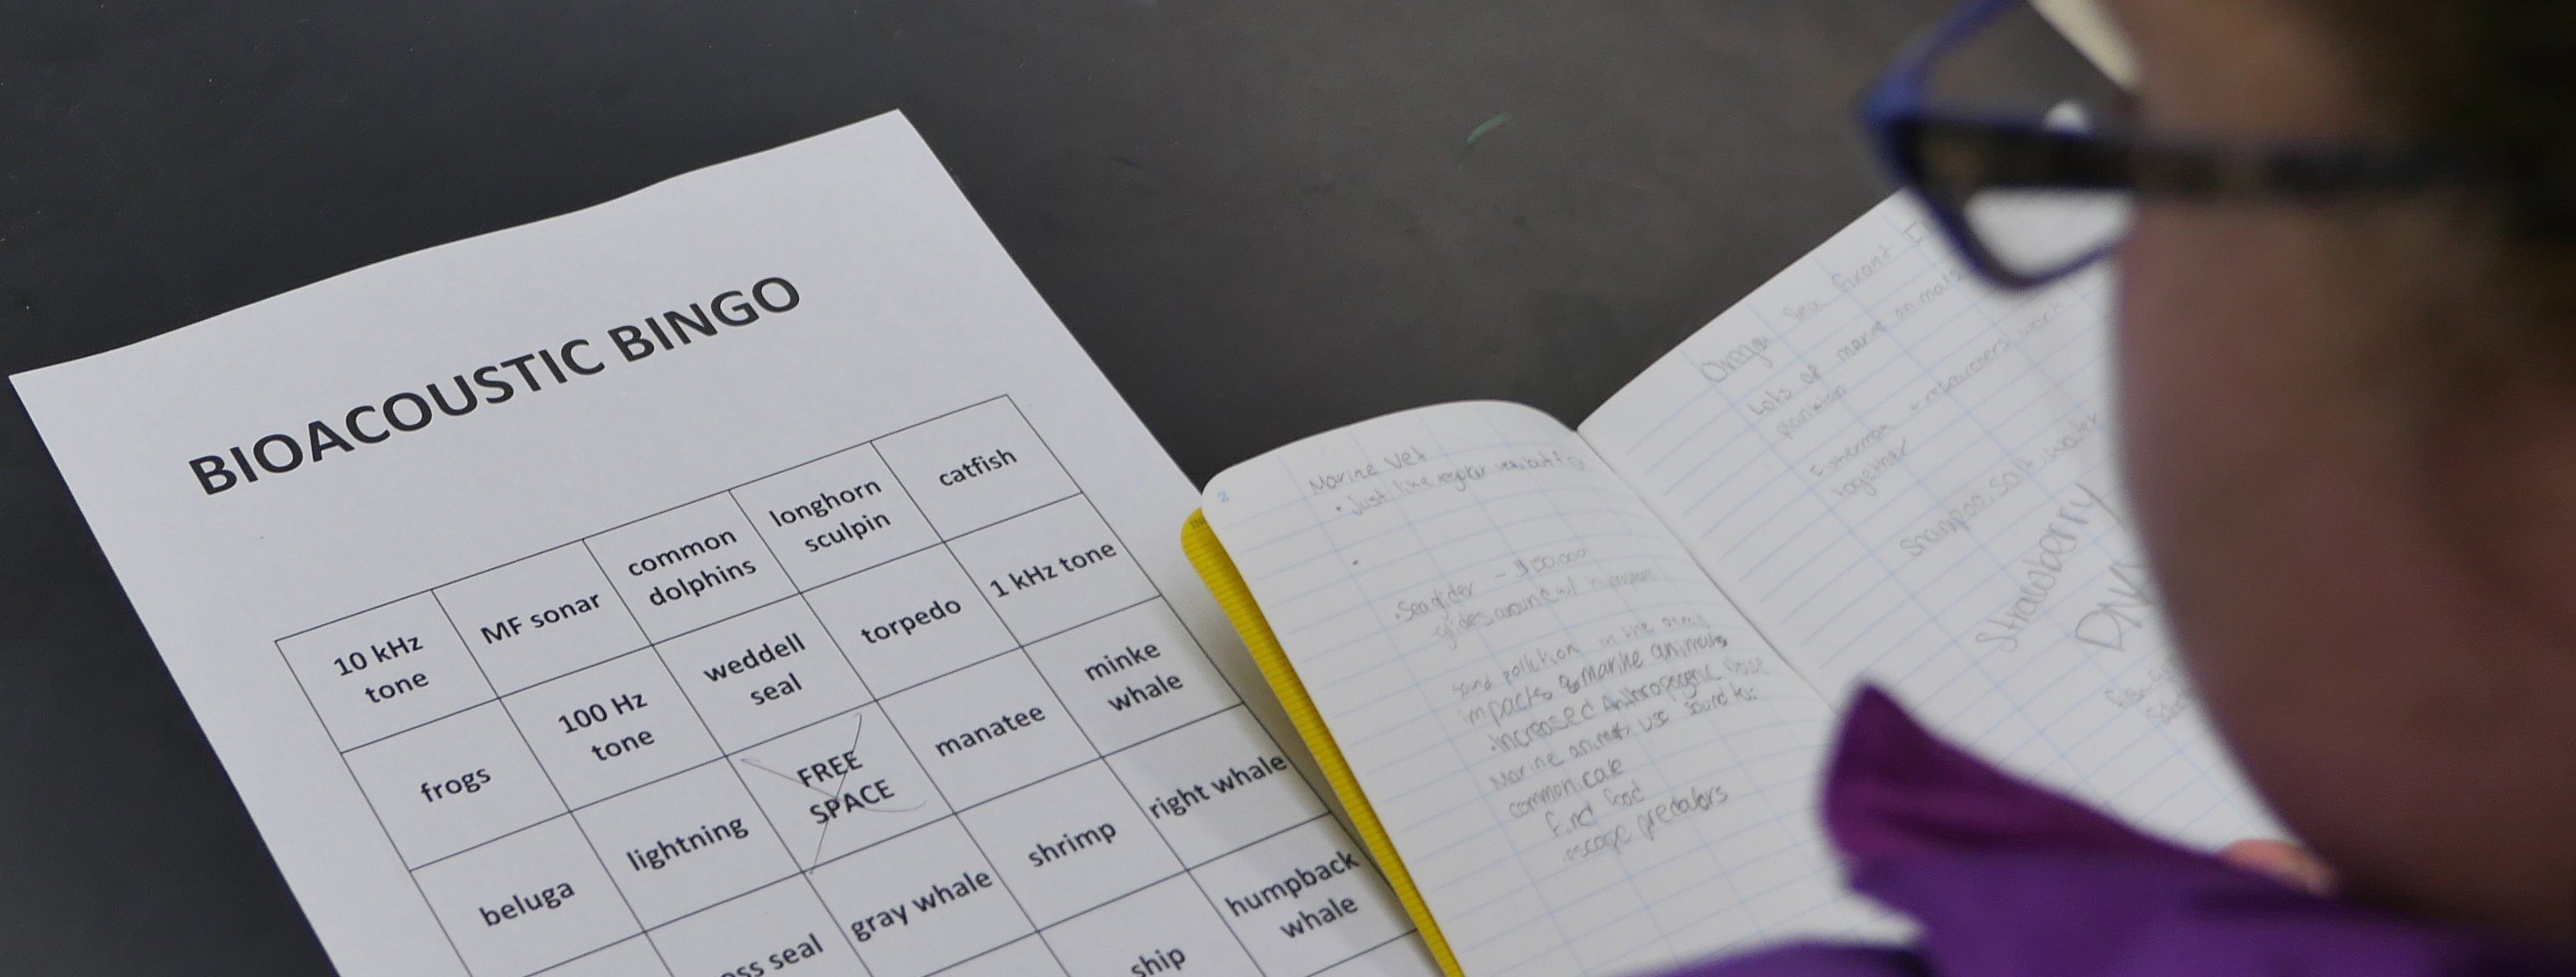 BIOACOUSTIC BINGO
10 kHz
tone
MF sonar
common
dolphins
longhorn
sculpin
catfish
frogs
100 Hz
tone
weddell
seal
torpedo
1 kHz tone
beluga
lightning
FREE
SPACE
manatee
minke
whale
ss seal
gray whale
shrimp
right whale
ship
humpback
whale
2
Marine Vet
• Just like regular
• Seaglider - $150,000
glides around w/
sound pollution in the ocean
impacts marine animals
• increased Anthropogenic
Marine animals use sound to:
communicate
find food
escape predators
Oregon Sea Grant
Lots of marine animals
plankton
Fisherman + researchers work
together
Shampoo, salt, water
Strawberry
DNA